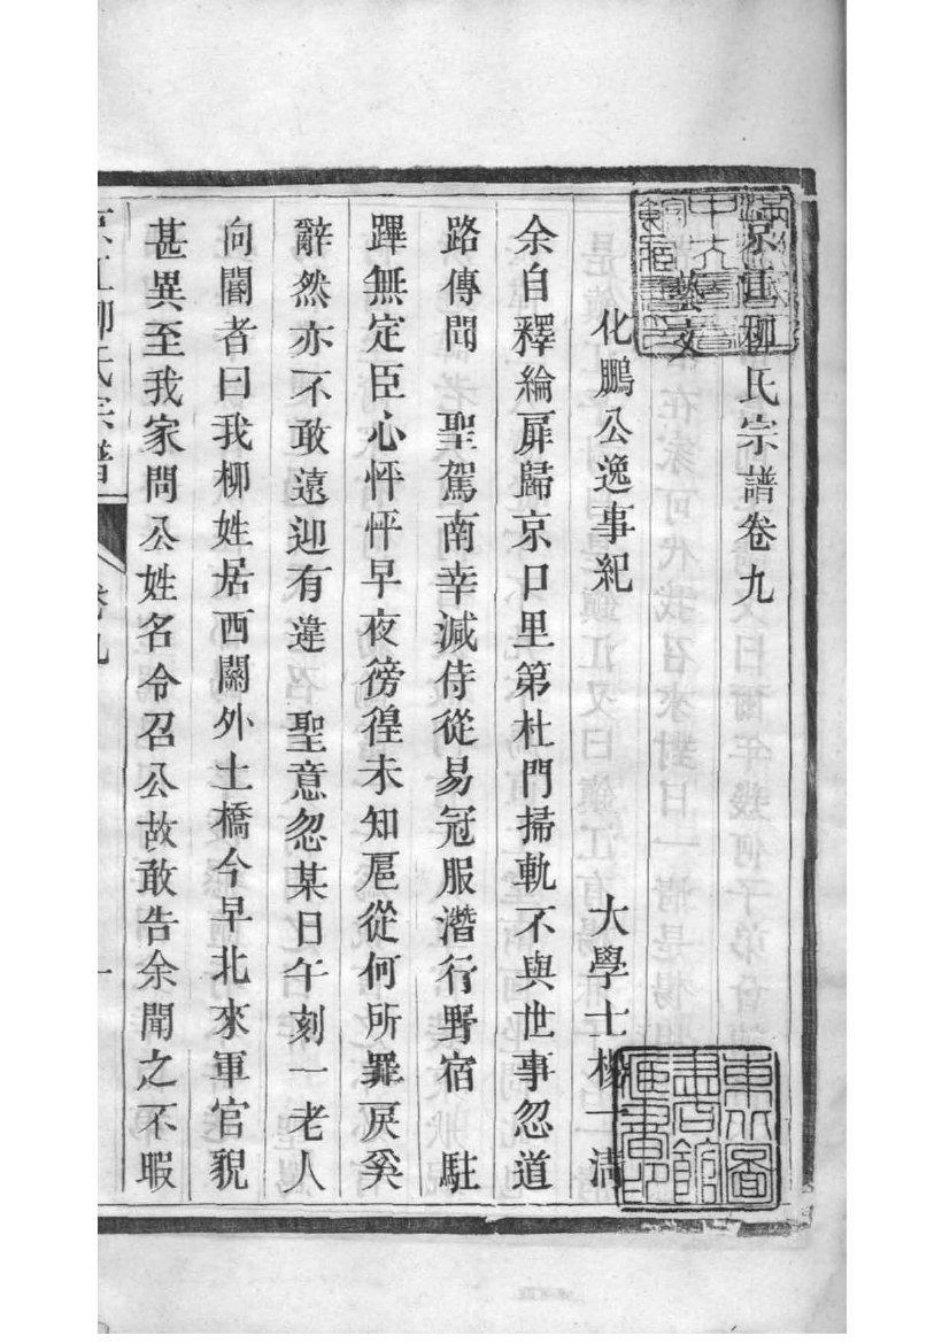 京江柳氏宗譜卷九
藝文
化鵬公逸事紀 大學士楊一清
余自釋綸扉歸京口里第杜門掃軌不與世事忽道
路傳問 聖駕南幸減侍從易冠服潛行野宿 駐
蹕無定臣心怦怦早夜徬徨未知扈從何所罪戾奚
辭然亦不敢遠迎有違 聖意忽某日午刻一老人
向閽者曰我柳姓居西關外土橋今早北來軍官貌
甚異至我家問公姓名令召公故敢告余聞之不暇
京江柳氏宗譜 卷九 一